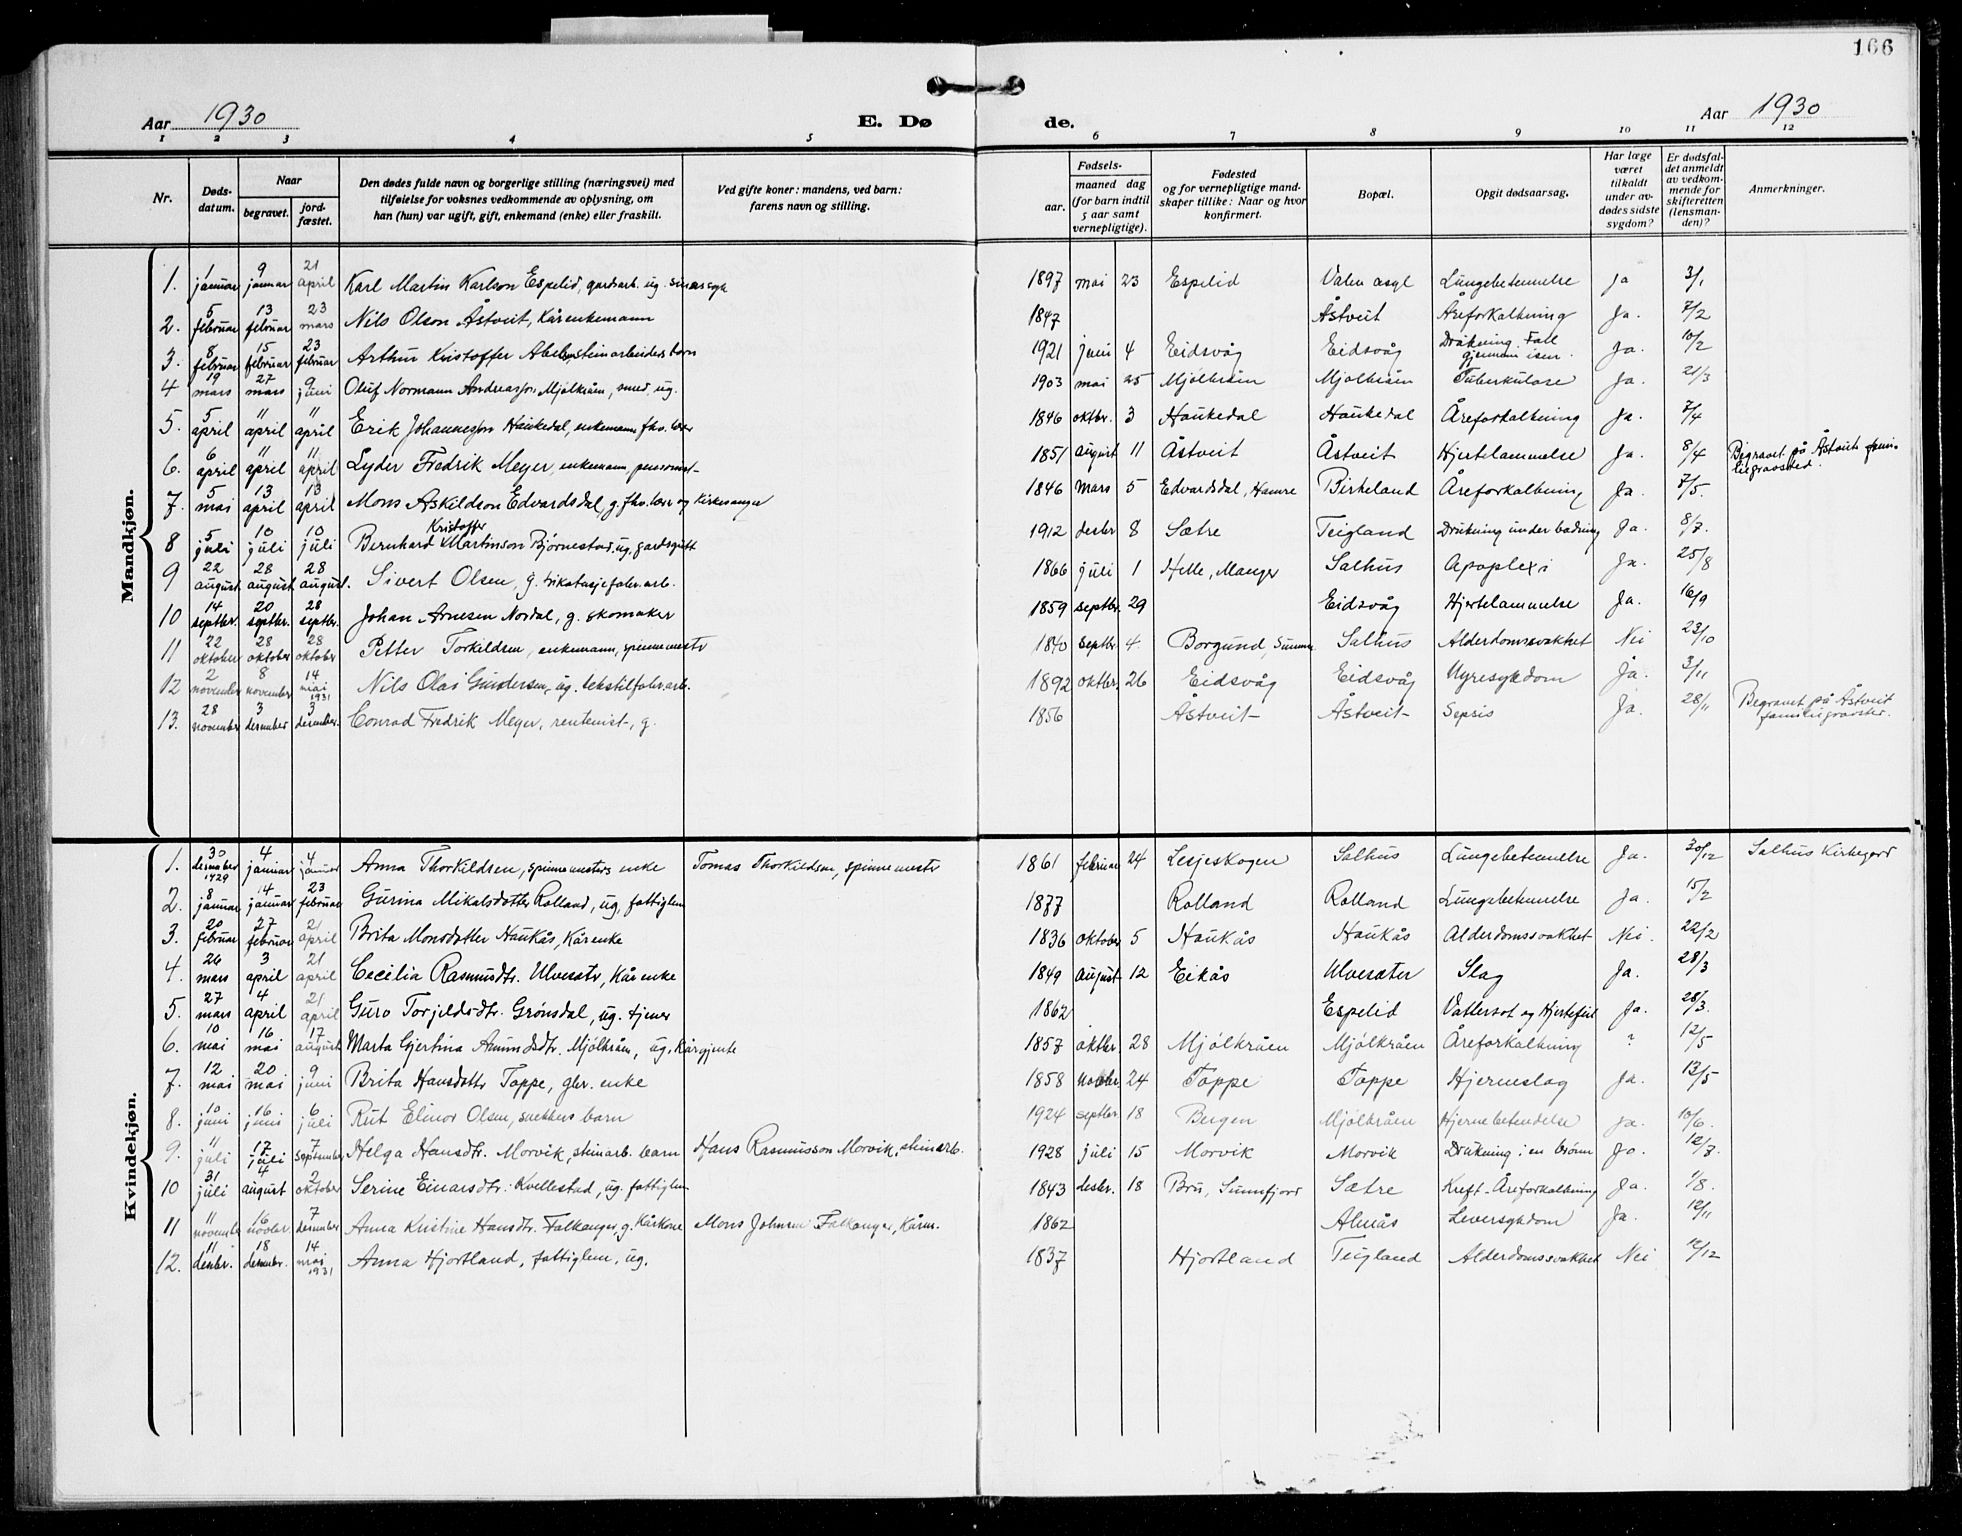 166
Aar 1930
E. Døde.
Aar 1930
1 2 3 4 5 6 7 8 9 10 11 12
Nr.
Døds-datum.
Naar
begravet.
jord-fæstet.
Den dødes fulde navn og borgerlige stilling (næringsvei) med
tilføielse for voksnes vedkommende av oplysning, om
han (hun) var ugift, gift, enkemand (enke) eller fraskilt.
Ved gifte koner: mandens, ved barn:
farens navn og stilling.
Fødsels-
aar.
maaned dag
(for barn indtil
5 aar samt
vernepligtige).
Fødested
og for vernepligtige mand-
skaper tillike: Naar og hvor
konfirmert.
Bopæl.
Opgit dødsaarsag.
Har læge
været
tilkaldt
under av-
dødes sidste
sygdom?
Er dødsfal-
det anmeldt
av vedkom-
mende for
skifteretten
(lensman-
den)?
Anmerkninger.
Mandkjøn.
1. 1 januar 9 januar 21 april Karl Martin Karlson Espelid, gardsarb. ug. sinnssyk 1897 mai 23 Espelid Valen asyl Lungebetennelse Ja 3/1
2. 5 februar 13 februar 23 mars Nils Olson Åstveit, Kårenkemann 1847 Åstveit Åreforkalkning Ja. 7/2
3. 8 februar 15 februar 23 februar Arthur Kristoffer Abelsen steinarbeiders barn 1921 juni 4 Eidsvåg Eidsvåg Drukning. Fall gjennem isen. Ja. 10/2
4 19 mars 27 mars 9 juni Oluf Normann Andreasson Mjølkråen, smed, ug. 1903 mai 25 Mjølkråen Mjølkråen Tuberkulose Ja. 21/3
5. 5 april 11 april 11 april Erik Johannesson Haukedal, enkemann, fhv. lærer 1846 oktbr. 3 Haukedal Haukedal Åreforkalkning Ja. 7/4
6. 6 april 11 april 11 april Lyder Fredrik Meyer, enkemann, pensionist 1851 august 11 Åstveit Åstveit Hjertelammelse Ja. 8/4 Begravet på Åstveit familiegravsted.
7. 5 mai 13 april 13 april Mons Askildson Edvardsdal, g. fhv. lærer og kirkesanger 1846 mars 5 Edvardsdal, Hamre Birkeland Åreforkalkning Ja. 7/5.
8 5 juli 10 juli 10 juli Bernhard Kristoffer Martinson Bjørnestad, ug. gardsgutt 1912 desbr 8 Sætre Teigland Drukning under badning Ja. 8/7.
9 22 august 28 august 28 august. Sivert Olsen, g. trikotasjefabr. arb. 1866 juli 1 Helle, Manger Salhus Apoplexi Ja. 25/8
10 14 septbr. 20 septbr. 28 septbr. Johan Arnesen Nordal, g. skomaker 1859 septbr. 29 Eidsvåg Hjertelammelse Ja. 16/9
11 22 oktober 28 oktober 28 oktober Petter Torkildsen, enkemann, spinnemester 1840 septbr 4. Borgund, Sunnm Salhus Alderdomssvakhet Nei 23/10
12 2 november 8 november 14 mai 1931 Nils Olai Gundersen, ug. tekstilfabr.arb. 1892 oktbr. 26 Eidsvåg Eidsvåg Nyresykdom Ja. 3/11
13. 28 november 3 desember 3 desember. Conrad Fredrik Meyer, rentenist, g. 1856 Åstveit Åstveit Sepsis Ja. 28/11 Begravet på Åstveit familiegravsted.
Kvindekjøn.
1. 30 desember 1929 4 januar 4 januar Anna Thorkildsen, spinnemesters enke Tomas Thorkildsen, spinnemester 1861 februar 24 Lesjeskogen Salhus Lungebetennelse Ja. 30/12 Salhus Kirkegard
2. 8 januar 14 januar 23 februar Gurina Mikalsdotter Rolland, ug. fattiglem 1877 Rolland Rolland Lungebetennelse Ja. 15/2
3. 20 februar 27 februar 21 april Brita Monsdotter Haukås, Kårenke 1836 oktober 5 Haukås Haukås Alderdomssvakhet Nei. 22/2
4. 26 mars 3 april 21 april Cecilia Rasmusdtr. Ulvesæter, Kårenke 1849 august 12 Eikås Ulvesæter Slag Ja. 28/3
5. 27 mars 4 april 21 april Guro Torjeldsdtr. Grønsdal, ug. tjener 1862 Espelid Vattersot og Hjertefeil Ja. 28/3.
6. 10 mai 16 mai 17 august Marta Gjertina Amundsdtr. Mjølkråen, ug. Kårgjente 1857 oktbr 28 Mjølkråen Mjølkråen Åreforkalkning ? 12/5
7. 12 mai 20 mai 9 juni Brita Hansdotter Toppe, gbr. enke 1858 novbr. 24 Toppe Toppe Hjerneslag Ja. 13/5
8. 10 juni 16 juni 6 juli Rut Elinor Olsen, snekkers barn 1924 septbr 18 Bergen Mjølkråen Hjernebetendelse Ja. 10/6.
9. 11 juli 17 juli 7 september Helga Hansdtr. Morvik, steinarb. barn Hans Rasmusson Morvik, steinarb. 1928 juli 15 Morvik Morvik Drukning i en brønn Ja. 12/7.
10 31 juli 4 august 2 oktober Serine Einarsdtr. Kvellestad, ug. fattiglem 1843 desbr. 18 Bru, Sunnfjord Sætre Kreft - Åreforkalkning Ja. 1/8.
11 11 november 16 novbr. 7 desember Anna Kristine Hansdtr. Falkanger, g. Kårkone Mons Johnsen Falkanger, Kårm. 1862 Almås Leversykdom Ja. 12/11
12. 11 desbr. 18 desembr. 14 mai 1931 Anna Hjortland, fattiglem, ug. 1837 Hjortland Teigland Alderdomssvakhet Nei 12/12